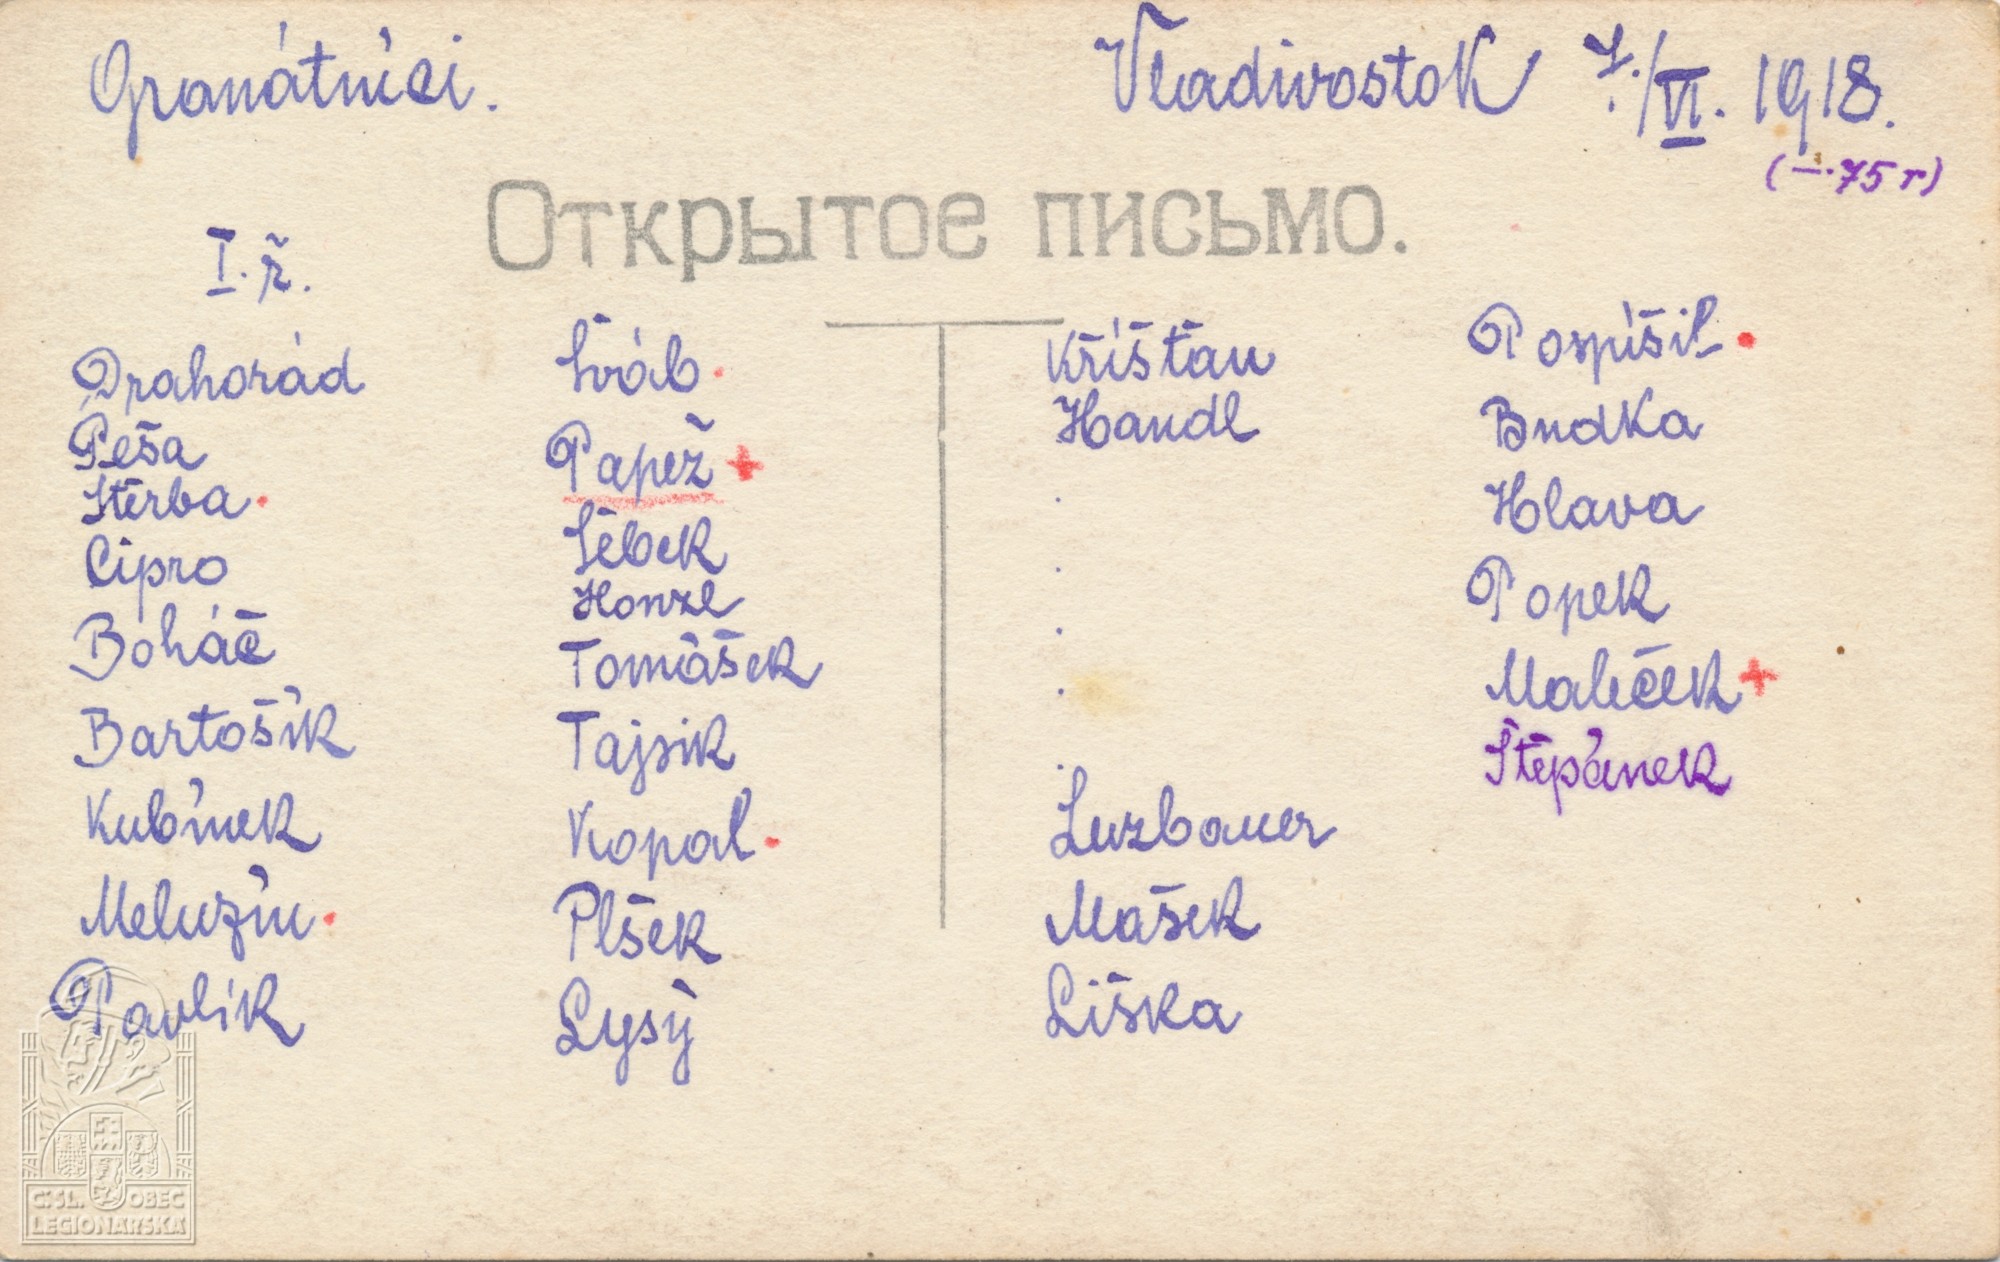 Granátníci.
Vladivostok 7./VI. 1918.
(–·75 r)
Открытое письмо.
I. ř.
Drahorád
Peša
Štěrba.
Cipro
Boháč
Bartošík
Kubínek
Meluzín.
Pavlík
Šváb.
Papež +
Šebek
Honzl
Tomášek
Tajsik
Kopal.
Plšek
Lysý
Křišťan
Handl
.
.
.
.
.
Luzbauer
Mašek
Liška
Pospíšil.
Budka
Hlava
Popek
Maleček +
Štěpánek
Č. SL. OBEC
LEGIONÁŘSKÁ